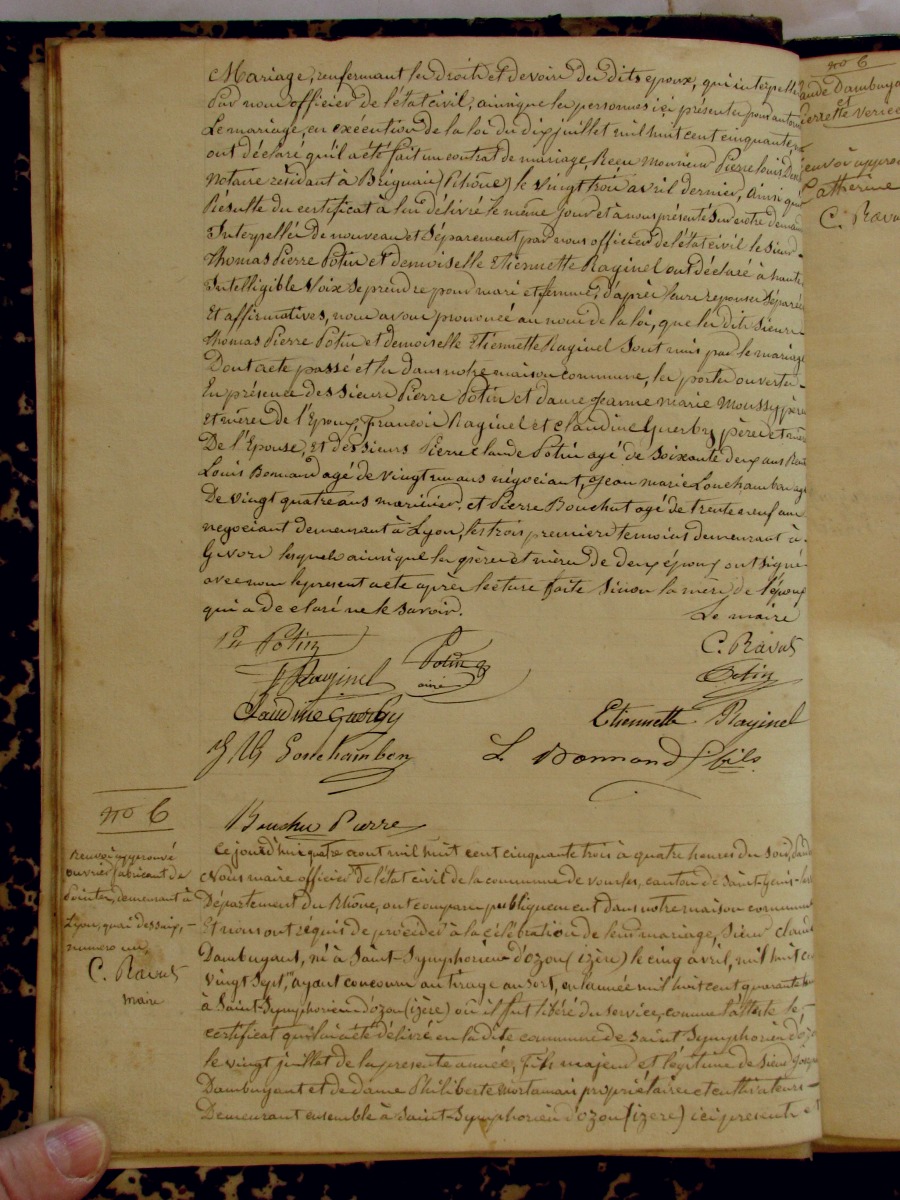 Mariage, renfermant les droits et devoirs des dits epoux, qui interpellés
Par nous officier de l'état civil, ainsi que les personnes ici présentes pour autoriser
Le mariage, en exécution de la loi du dix juillet mil huit cent cinquante,
ont déclaré qu'il a été fait un contrat de mariage, Recu Monsieur Pierre Louis
Notaire résidant à Brignais (Rhône) le vingt trois avril dernier, ainsi qu'il
Résulte du certificat à lui délivré le même jour et à nous présenté sur notre demande
Interpellés de nouveau et séparement par nous officier de l'état civil le sieur
Thomas Pierre Potin et demoiselle Etiennette Raginel ont déclaré à haute
Intelligible Voix se prendre pour mari et femme, d'après leurs reponses Séparées
Et affirmatives, nous avons prononcé au nom de la loi, que les dits sieur
Thomas Pierre Potin et demoiselle Etiennette Raginel sont unis par le mariage
Dont acte passé et lu dans notre maison commune, les portes ouvertes
En présence des sieurs Pierre Potin et dame Jeanne marie Moussy père
Et mère de l'Epoux, Francois Raginel et claudine Guerby père et mère
De l'Epouse, et des sieurs Pierre claude Potin agé de soixante deux ans
Louis Bonnand agé de vingt un ans négociant, Jean marie Lonchambon agé
De vingt quatre ans marinier, et Pierre Bouchut agé de trente neuf ans
negociant demeurant à Lyon, les trois premiers temoins demeurant à
Givors lesquels ainsi que les pères et mères de deux époux ont signé
avec nous le present acte après lecture faite sinon la mère de l'époux
qui a declaré ne le savoir.
Le maire
C. Ravat
Potin
Potin ainé
Raginel
Potin
Claudine Guerby
Etiennette Raginel
J M Lonchambon
L. Bonnand fils
Bouchu Pierre
no 6
Renvoi approuvé
ouvrier fabricant de
Pointes, demeurant à
Lyon, quai dessaix,
numero un
C. Ravat
maire
Ce jourd'hui quatre aout mil huit cent cinquante trois à quatre heures du soir, devant
Nous maire officier de l'état civil de la commune de vourles, canton de Saint-Genis-Laval
Département du Rhône, ont comparu publiquement dans notre maison commune
Et nous ont requis de procéder à la célébration de leur mariage, Sieur claude
Dambuyant, né à Saint-Symphorien-d'ozon (izère) le cinq avril, mil huit cent
vingt Sept, ayant concouru au tirage au sort, en l'année mil huit cent quarante
à Saint-Symphorien d'ozon (izère) où il fut libéré du service, comme l'atteste le
certificat qui lui a été délivré en la dite commune de Saint Symphorien d'ozon
le vingt juillet de la presente année, fils majeur et légitime de Sieur Joseph
Dambuyant et de dame Philiberte mortamais propriétaires et cultivateurs
Demeurant ensemble à Saint-Symphorien d'ozon (izère) ici presents et
no 6
Claude Dambuyant
et
Pierrette
Renvoi approuvé
Catherine
C. Ravat